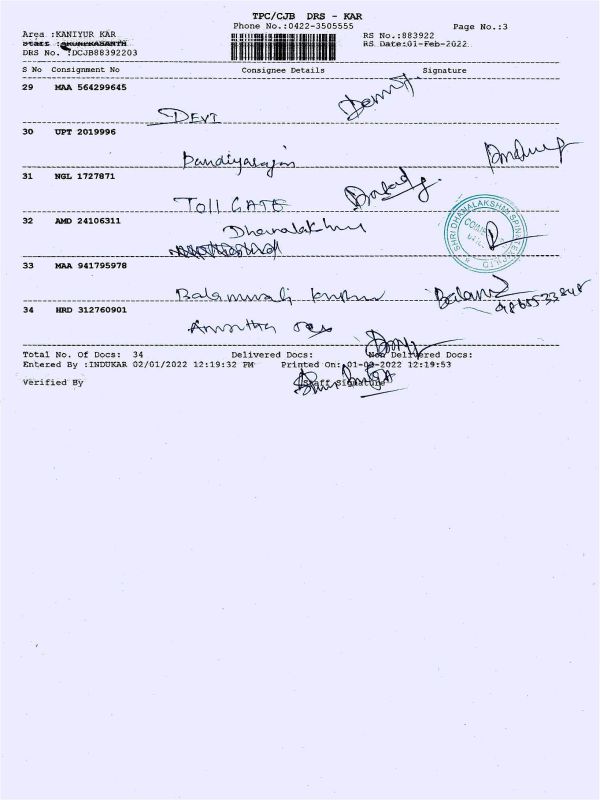 TPC/CJB DRS - KAR
Phone No.:0422-3505555
Page No.:3
Area :KANIYUR KAR
RS No.:883922
DRS No. :DCJB88392203
RS Date:01-Feb-2022
S No Consignment No Consignee Details Signature
29 MAA 564299645
DEVI
30 UPT 2019996
Pandiyarajan
31 NGL 1727871
Toll GATE
32 AMD 24106311
Dhanalakshmi
33 MAA 941795978
Balamurali
34 HRD 312760901
Amirtha
Total No. Of Docs: 34 Delivered Docs: Non Delivered Docs:
Entered By :INDUKAR 02/01/2022 12:19:32 PM Printed On: 01-02-2022 12:19:53
Verified By Staff Signature